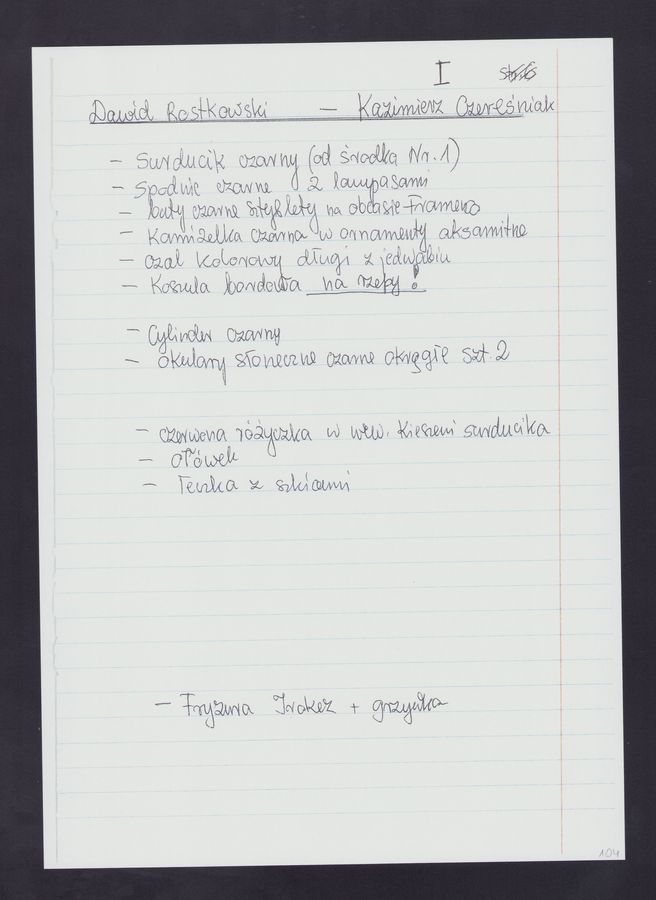 I
Dawid Rostkowski — Kazimierz Czereśniak
- Surducik czarny (od środka Nr. 1)
- Spodnie czarne z lampasami
- buty czarne sztyblety na obcasie Frameno
- Kamizelka czarna w ornamenty aksamitne
- szal kolorowy długi z jedwabiu
- Koszula bordowa na rzepy!
- Cylinder czarny
- okulary słoneczne czarne okrągłe szt. 2
- czerwona różyczka w wew. kieszeni surducika
- ołówek
- Teczka z szkicami
- Fryzura Irokez + grzywka
104